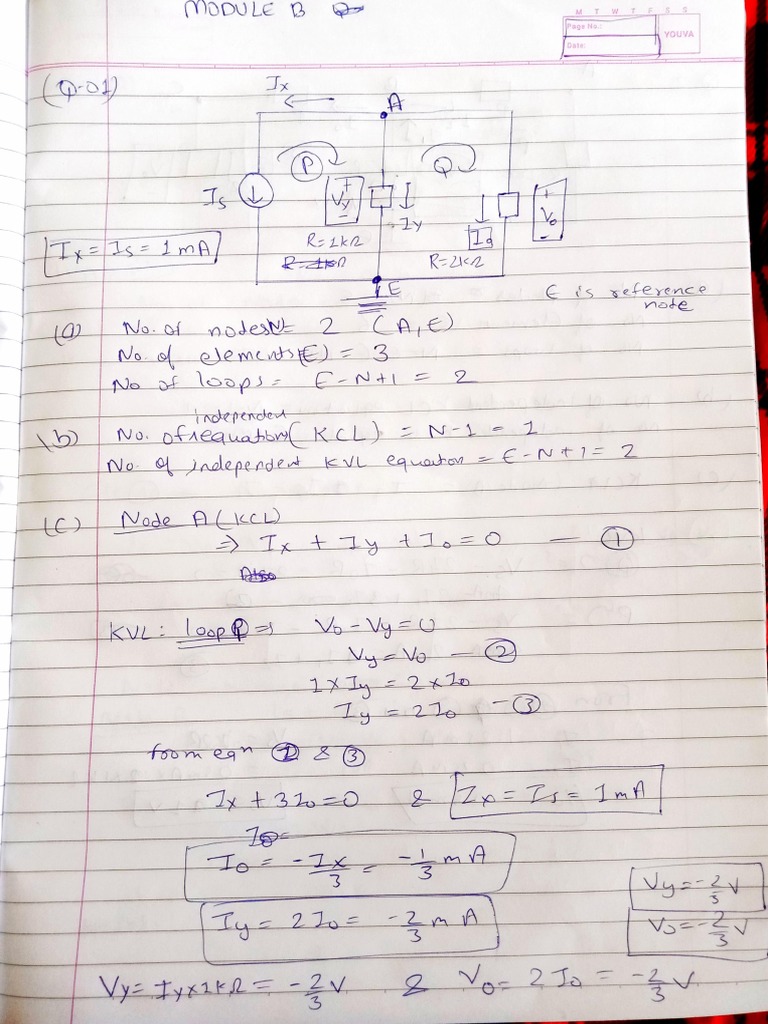 MODULE B
M T W T F S S
Page No.:
Date:
YOUVA
(Q-01)
Ix
A
P
Q
Is
+
Vy
-
Iy
Io
+
Vo
-
R=1kΩ
R=1kΩ
R=2kΩ
Ix = Is = 1mA
E
E is reference
node
(a) No. of nodes N= 2 (A, E)
No. of elements (E) = 3
No of loops = E-N+1 = 2
independent
(b) No. of equations (KCL) = N-1 = 1
No. of independent KVL equation = E-N+1 = 2
(c) Node A (KCL)
⇒ Ix + Iy + Io = 0 — ①
Also
KVL: loop Q ⇒ Vo - Vy = 0
Vy = Vo — ②
1×Iy = 2×Io
Iy = 2Io — ③
from eqn ① & ③
Ix + 3Io = 0 & Ix = Is = 1mA
Io =
Io = -Ix/3 = -1/3 mA
Iy = 2Io = -2/3 mA
Vy = -2/3 V
Vo = -2/3 V
Vy = Iy×1kΩ = -2/3 V & Vo = 2Io = -2/3 V